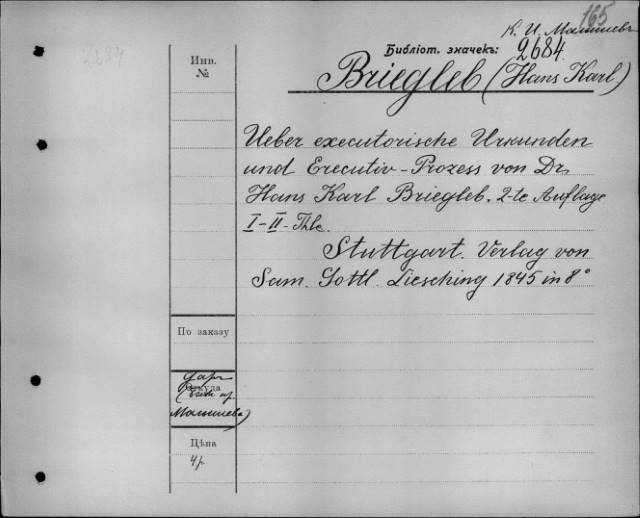 165
К. И. Малышевъ
2684
Инв.
№
Библіот. значекъ:
2684
Briegleb (Hans Karl)
Ueber executorische Urkunden
und Executiv-Prozess von Dr
Hans Karl Briegleb. 2-te Auflage
I-II-Thle.
Stuttgart. Verlag von
Sam. Gottl. Liesching 1845 in 8°
По заказу
Даръ
Откуда
Малышева)
Цѣна
4р